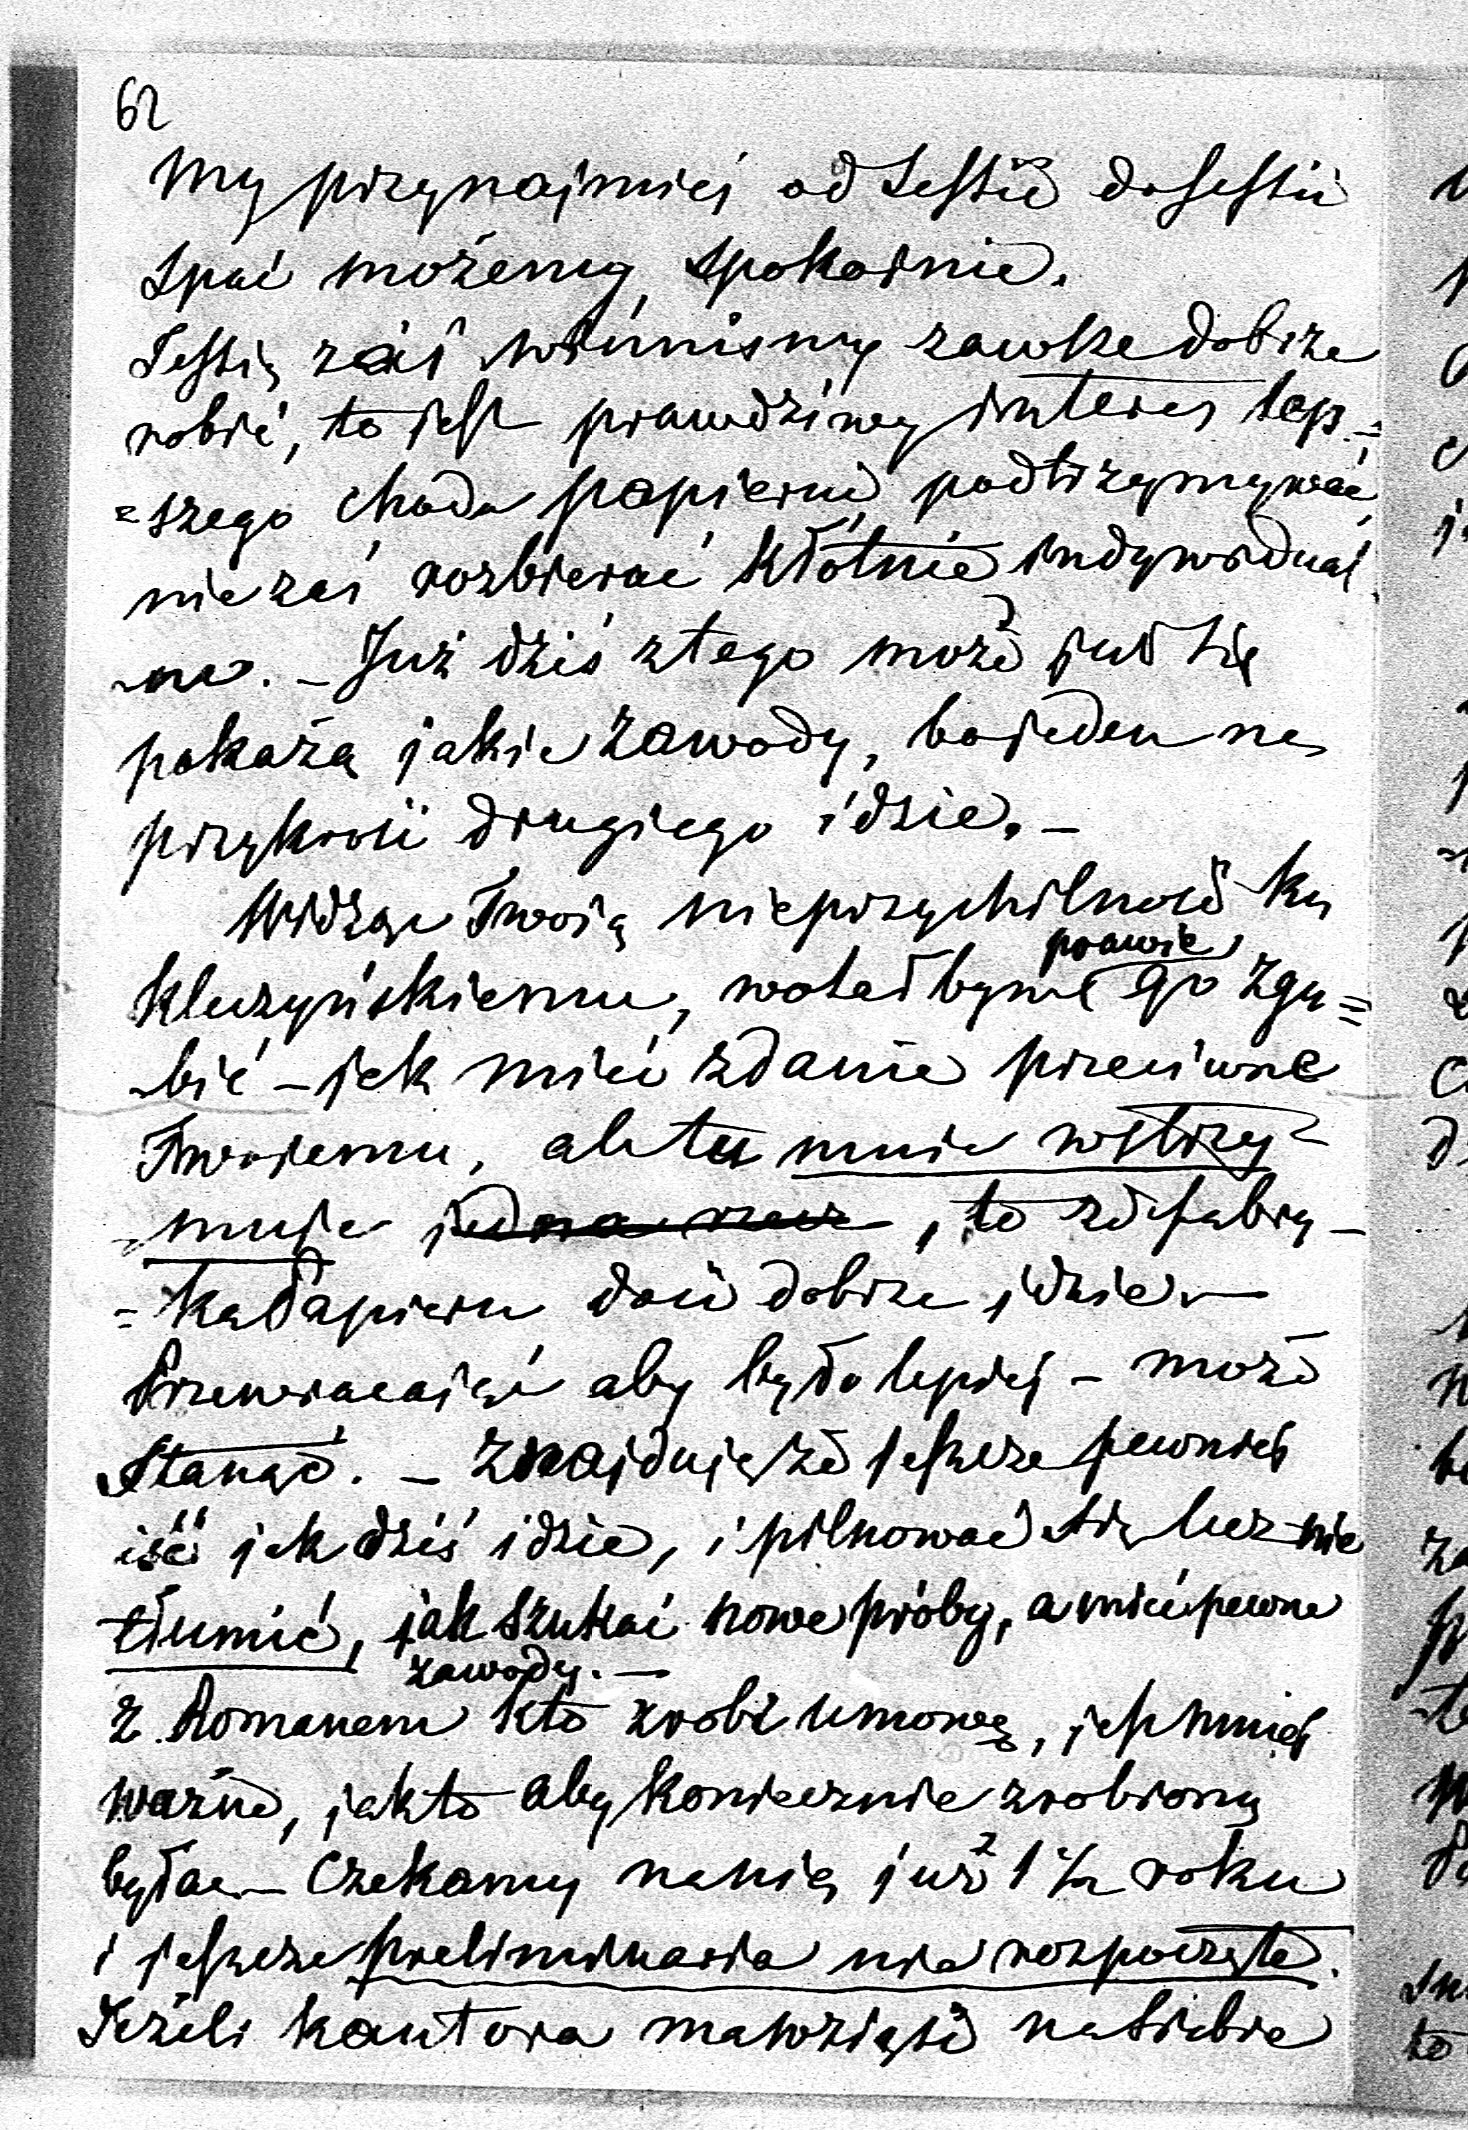 62
My przynajmniej od Sessii do Sessii
spać możemy spokojnie.
Sessię zaś winniśmy zawsze dobrze
robić, to jest prawdziwy interes lep-
=szego chodu papierni podtrzymywać,
nie zaś rozbierać kłótnie indywidual
-ne. – Już dziś z tego może już się
pokażą jakie zawody, bo jeden na
przykrość drugiego idzie. –
Widząc Twoją nieprzychilność ku
prawie
Kluczyńskiemu, wolałbym go zgu=
-bić – jak mieć zdanie przeciwne
Twojemu, ale tu mnie wstrzy-
-muje jedna rzecz, to że fabry-
=ka Papieru dość dobrze idzie –
Przewracając aby było lepiej – może
stanąć. – Znajduję że jeszcze pewniej
iść jak dziś idzie, i pilnować się lecz nie
tłumić, jak szukać nowe próby, a mieć pewne
zawody. –
z Romanem kto zrobi umowę, jest mniej
ważne, jak to aby koniecznie zrobioną
była. – Czekamy na nią już 1 ½ roku
i jeszcze preliminaria nie rozpoczęte.
Jeżeli kantora ma wziąść na siebie